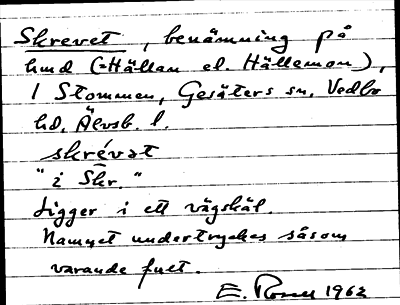 Skrevet, benämning på
hmd (=Hällan el. Hälleman),
1 Stommen, Gesäters sn, Vedbo
hd, Älvsb. l.
skrévat
"i Skr."
Ligger i ett vägskäl.
Namnet undertryckes såsom
varande fult.
E. Rosell 1962